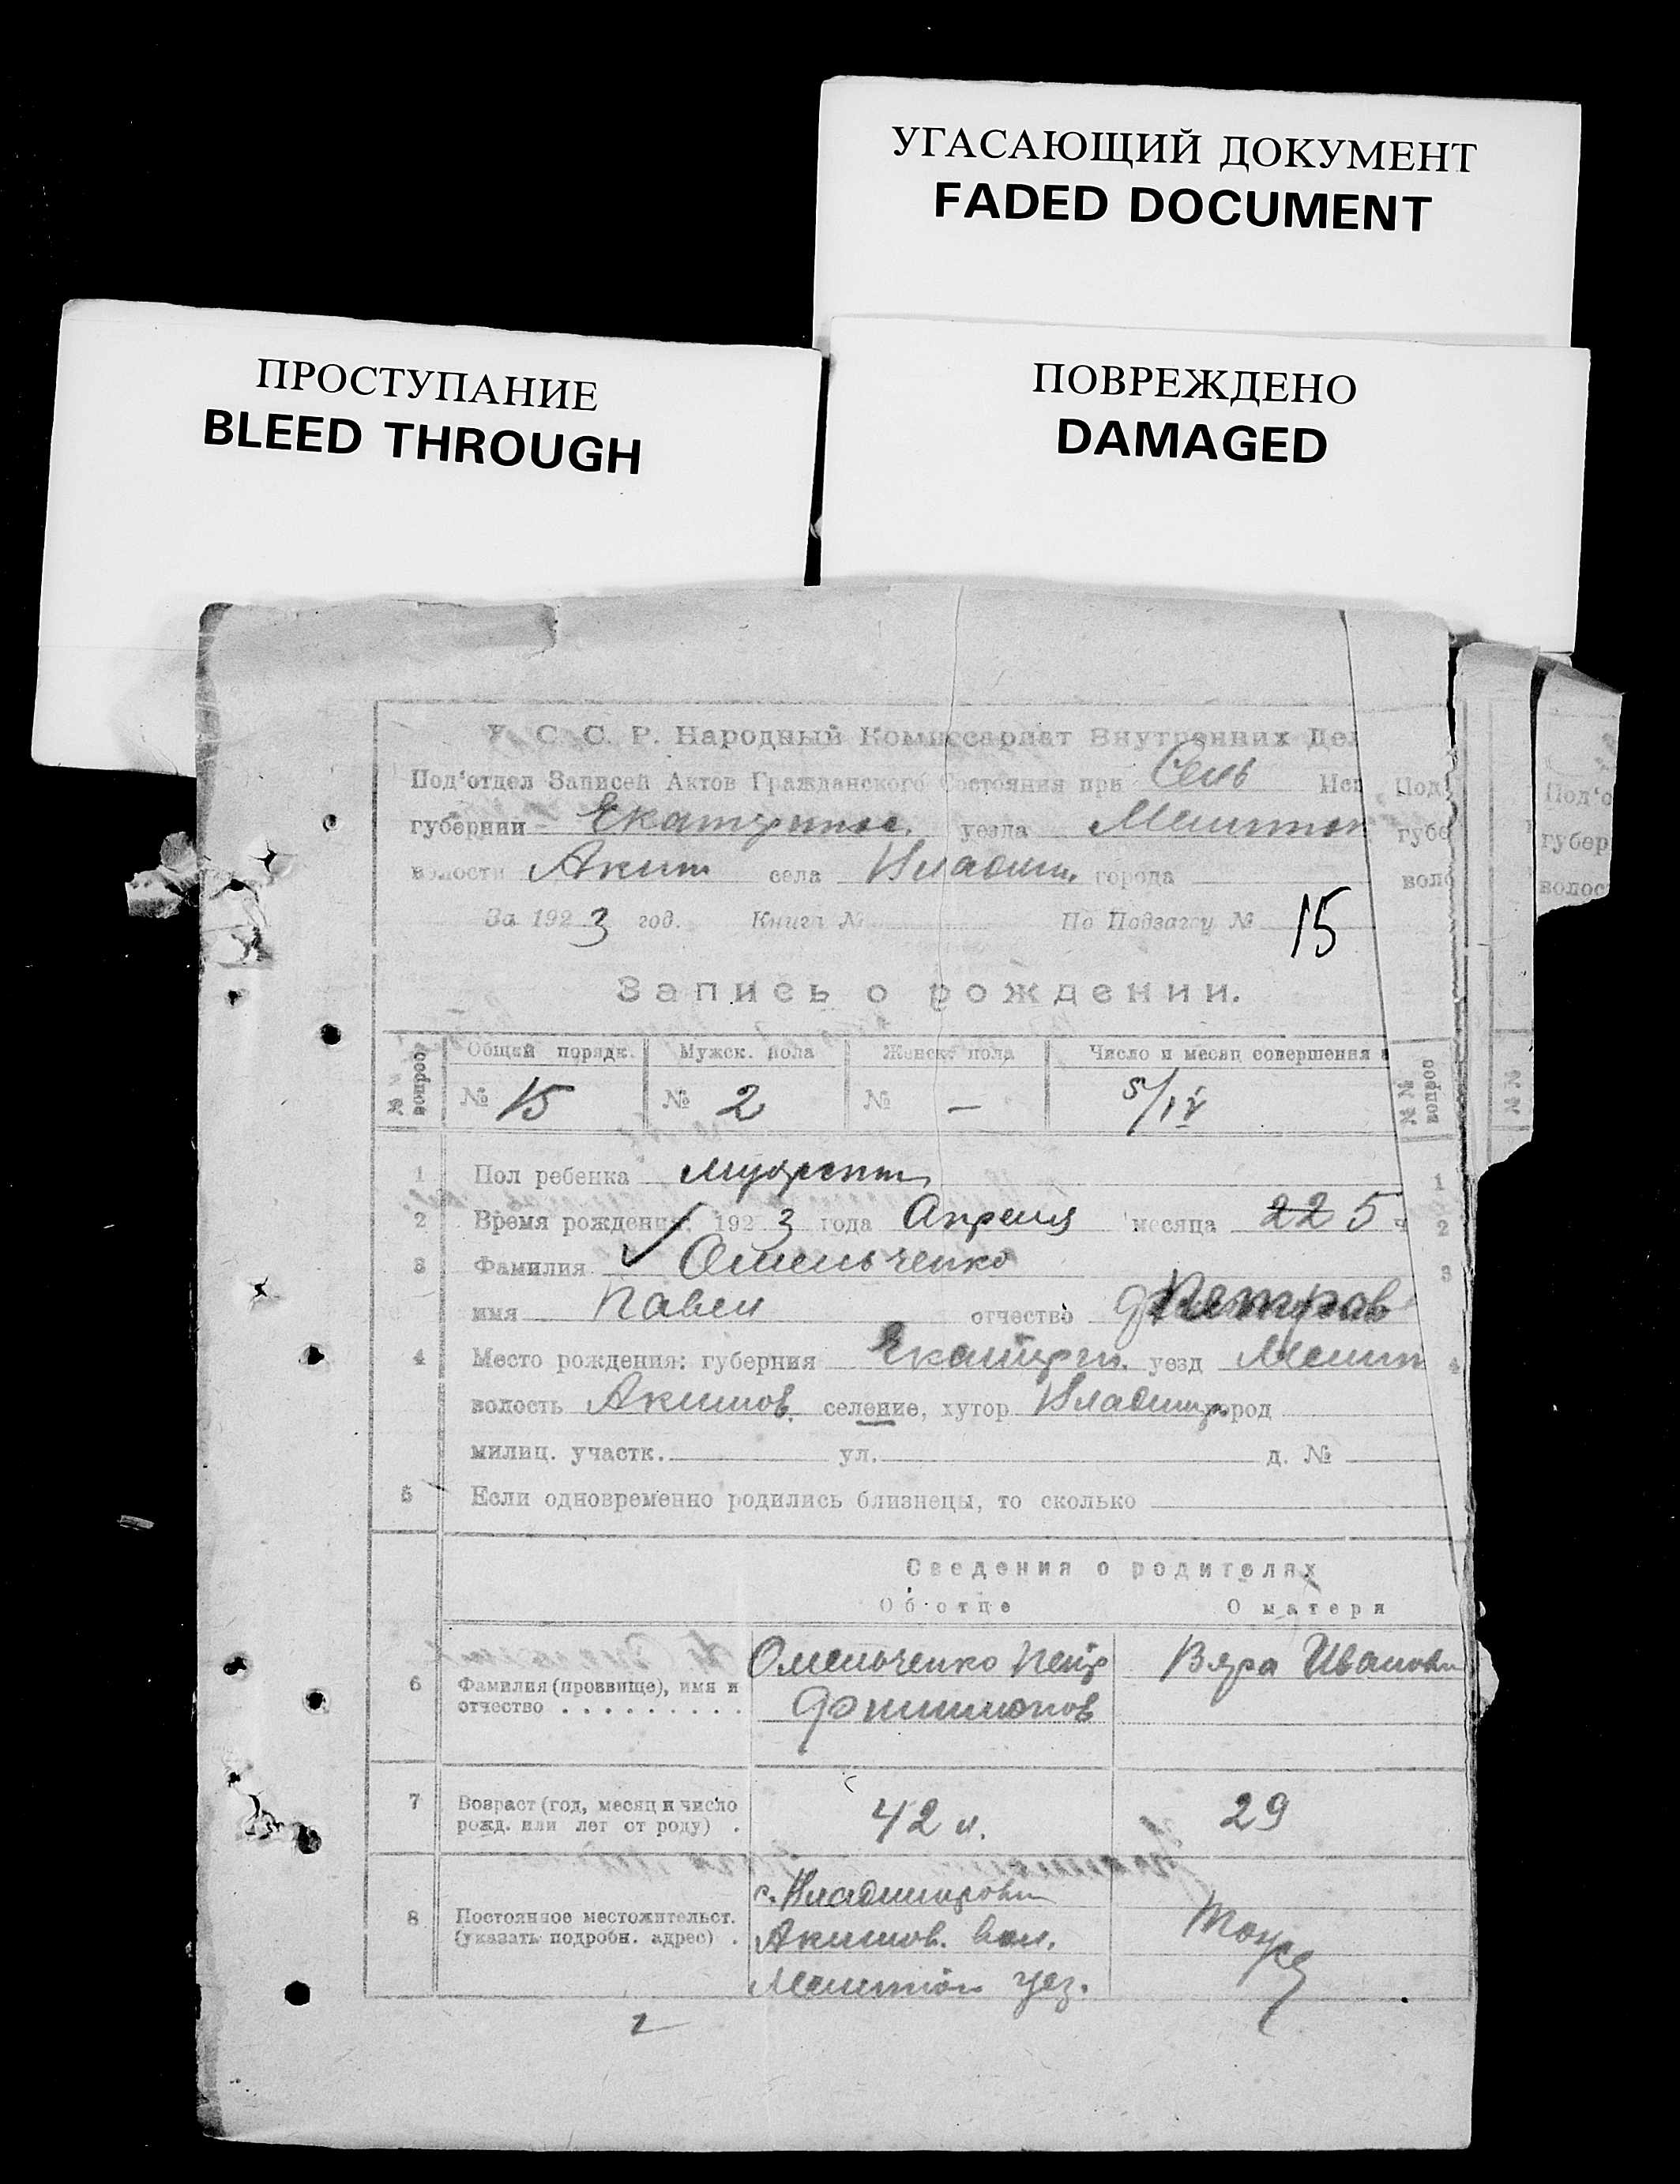 УГАСАЮЩИЙ ДОКУМЕНТ
FADED DOCUMENT
ПРОСТУПАНИЕ
BLEED THROUGH
ПОВРЕЖДЕНО
DAMAGED
У. С. С. Р. Народный Комиссариат Внутренних Дел
Под'отдел Записей Актов Гражданского Состояния при Сель Исп
губернии Екатеринос. уезда Мелитоп
волости Аким села Владим. города
За 1923 год. Книга № По Подзагсу № 15
Запись о рождении.
№ № вопрос
Общий порядк. Мужск. пола Женск. пола Число и месяц совершения
№ 15 № 2 № — 5/IV
1 Пол ребенка мужеск.
2 Время рождения: 1923 года Апреля месяца 22 5 ч
3 Фамилия Омельченко
имя Павел отчество Петров
4 Место рождения: губерния Екатерин. уезд Мелит
волость Акимов. селение, хутор Владимир. город
милиц. участк. ул. д. №
5 Если одновременно родились близнецы, то сколько
Сведения о родителях
Об отце О матери
6 Фамилия (прозвище), имя и отчество Омельченко Петр Вяра Ивановн
Филимонов
7 Возраст (год, месяц и число рожд. или лет от роду) 42 л. 29
8 Постоянное местожительст. (указать подробн. адрес) с. Владимировки
Акимов. вол. тоже
Мелитоп уез.
2
Под
губе
воло
№ № вопрос
1
2
3
4
Под'о
губер
волос
№ №